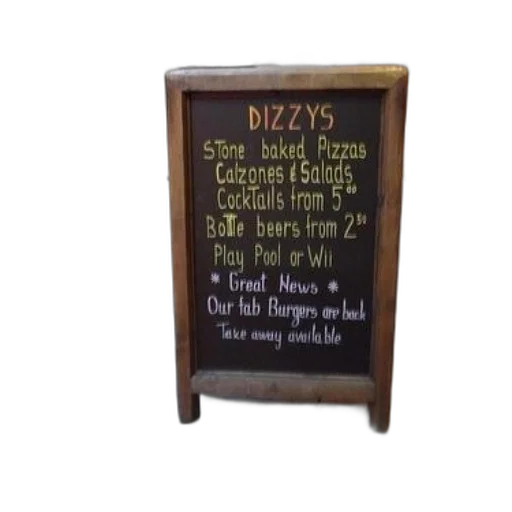 DIZZYS
Stone baked Pizzas
Calzones & Salads
Cocktails from 5°°
Bottle beers from 2⁵⁰
Play Pool or Wii
* Great News *
Our fab Burgers are back
Take away available